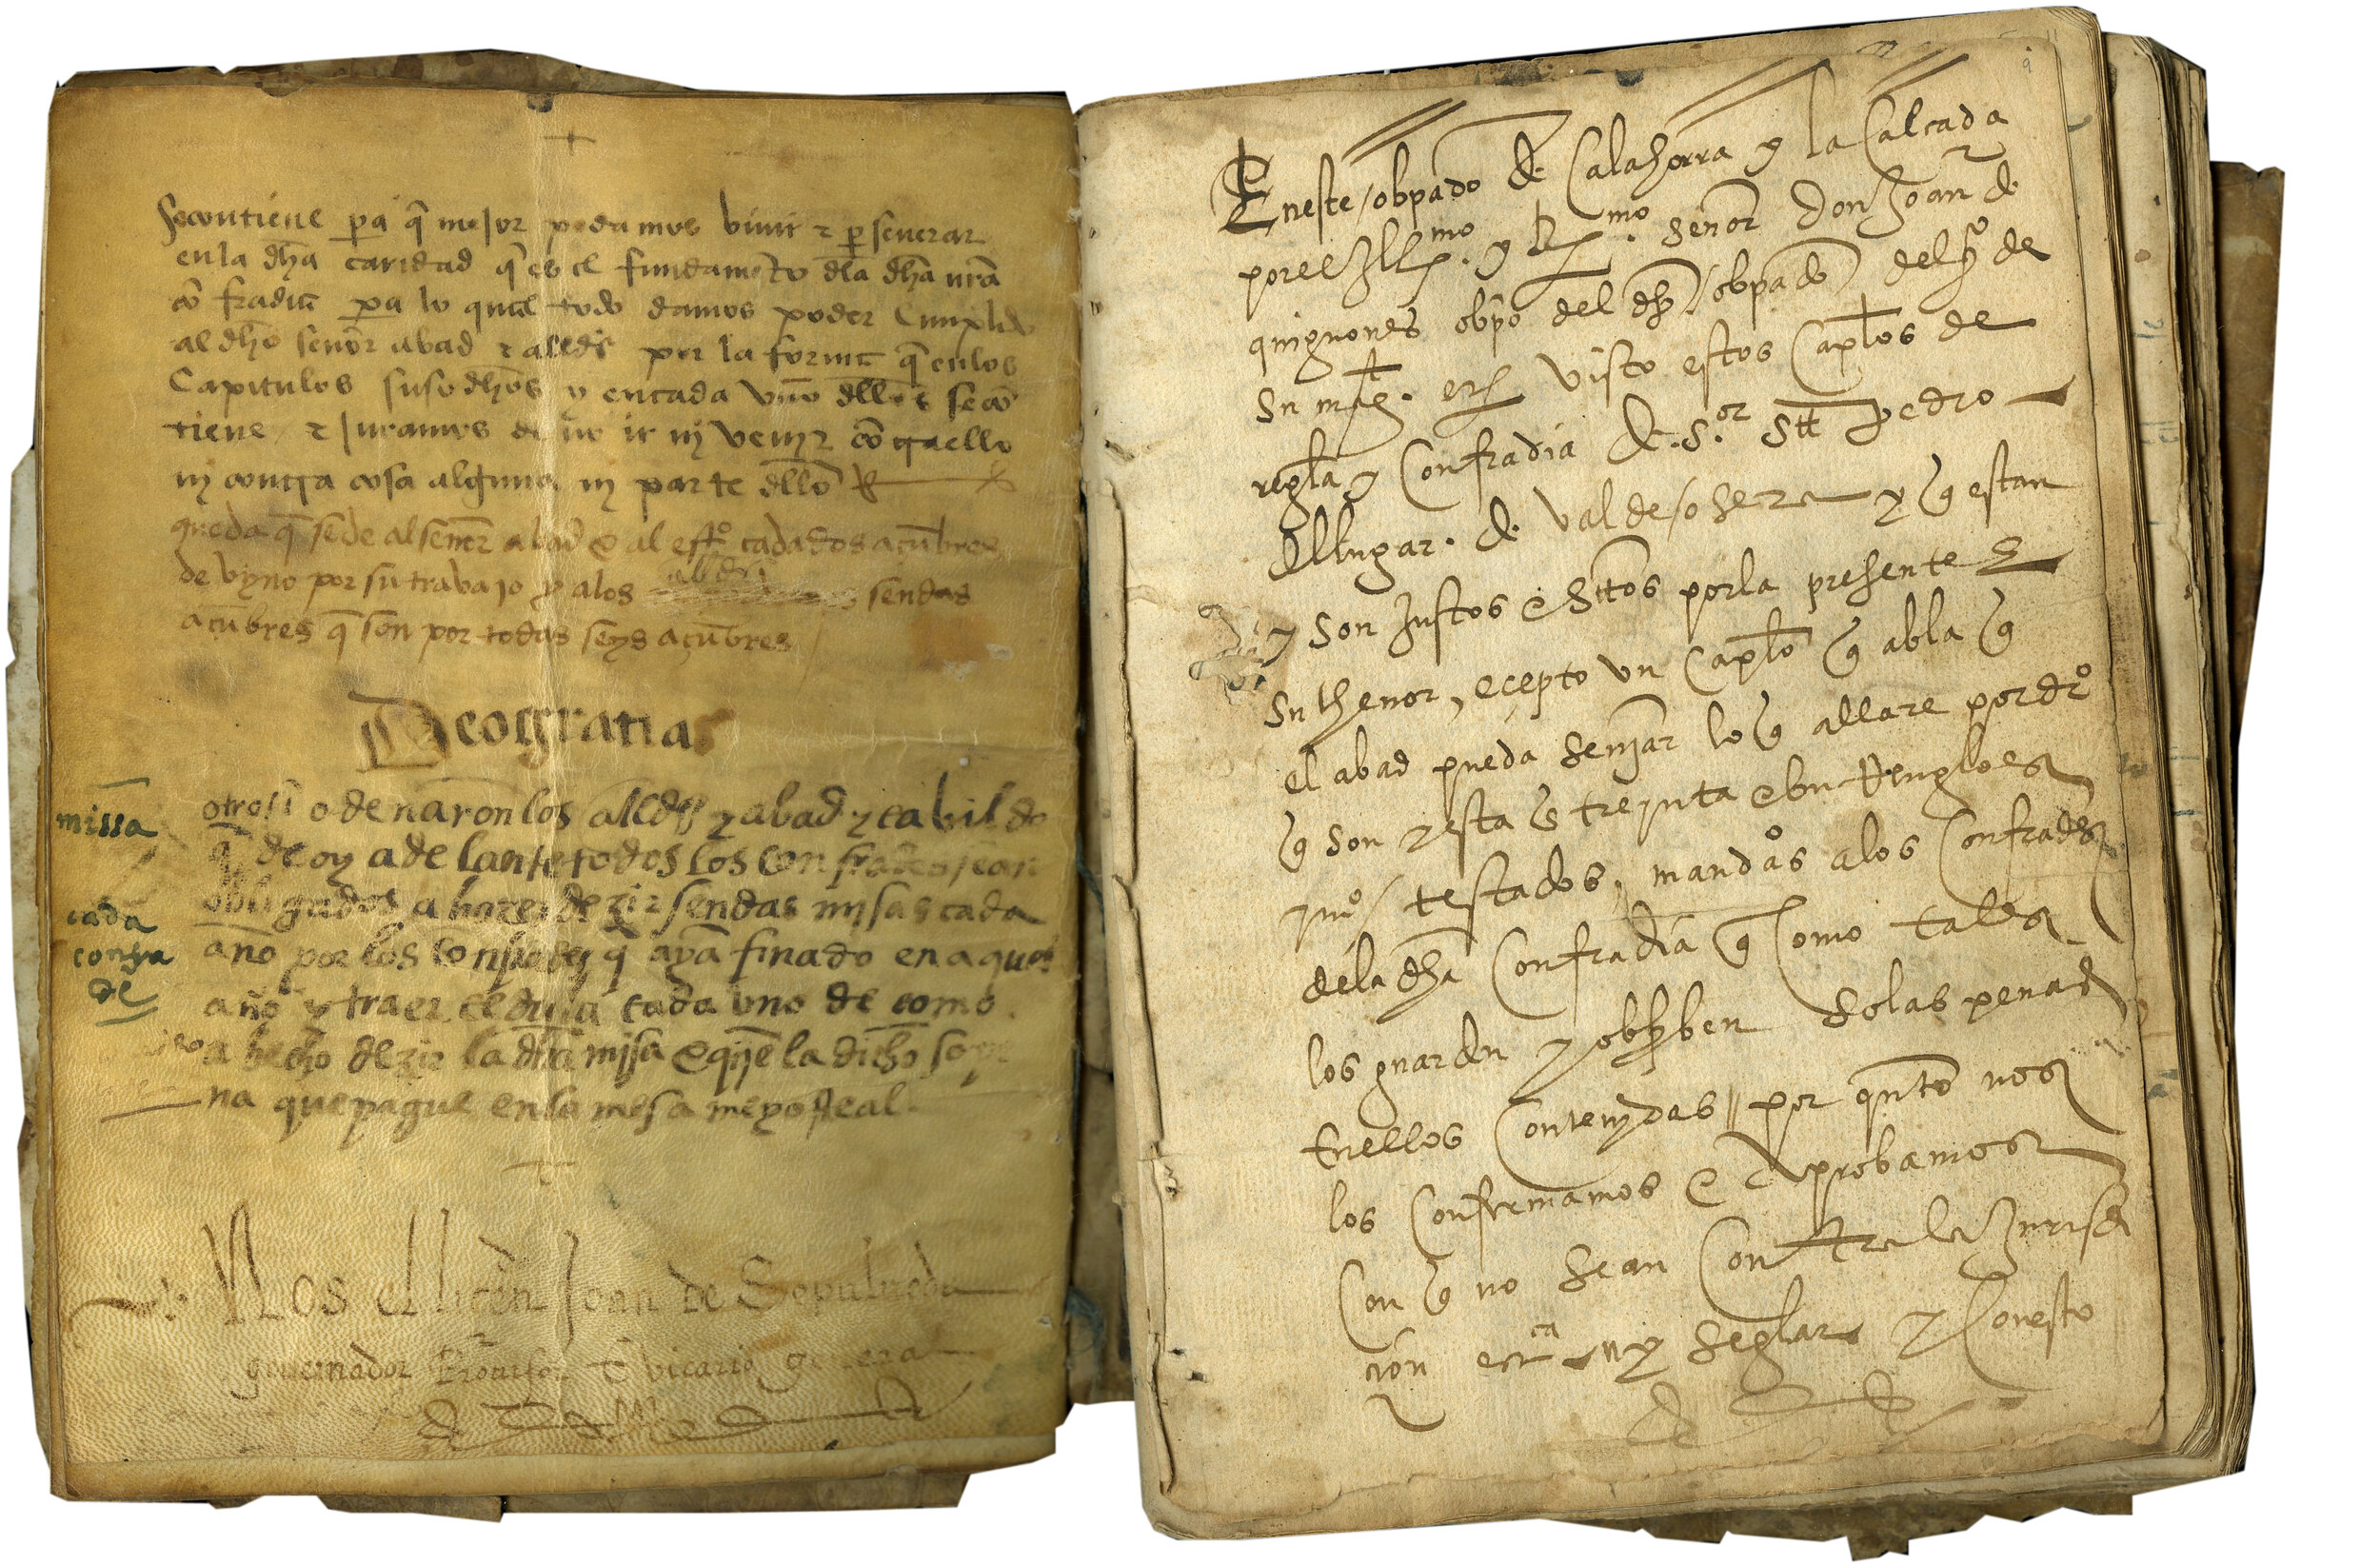 se contiene pa q̃ mejor podamos bivir τ p̱severar
en la dh̃a caridad q̃ es el fundamẽto dl̃a dh̃a nrã
cõfradia pa lo qual todo damos poder cumplido
al dh̃o señor abad τ allds̃ por la forma q̃ en los
Capitulos susodhõs y en cada vno dllõs se cõ
tiene τ juramos de no ir nj venjr cõtra ello
nj contra cosa alguna nj parte dllõ
queda q̃ se de al señor abad e al
cada dos açũbres
de vyno por su trabajo y a los alldes sendas
açũbres q̃ son por todas seys açũbres
Deogratias
missa
otrosi odenaron los allds̃ y abad y cabildo
q̃ de oy adelante todos los confrades sean
obligados a hazer dezir sendas mjsas cada
cada
confra
de
año por los confrades q̃ ayã finado en aquel
año y traer cedula cada vno de como
a hecho dezir la dh̃a mjsa e qujẽ la dicho so pe
na que pague en la mesa
Nos el licen Joan de Sepulueda
governador Prouisor e vicario general
En este obpado d. Calahorra y la Calcada
por el Ill.mo y R.mo señor don Joan d.
quignones obpõ del dh̃o obpado del cº de
su mag.t etc visto estos Caplos de
regla y Confradia d. s.or stt pedro
del lugar d. valdeosera y q estan
y son Justos e sttos por la presente
su thenor, ecepto un Caplo q abla q
el abad pueda senjar lo q allare por drº
q son y esta
treynta e
Renglones
testados, mandaº̃s a los Confrades
de la dh̃a Confradia q Como tales
los guarden y
so las penas
en ellos Contenjdas // por qnto nos
los Confirmamos e aprobamos
Con q no sean Contra la Jurisdi
cion ecca nj seglar y honesto